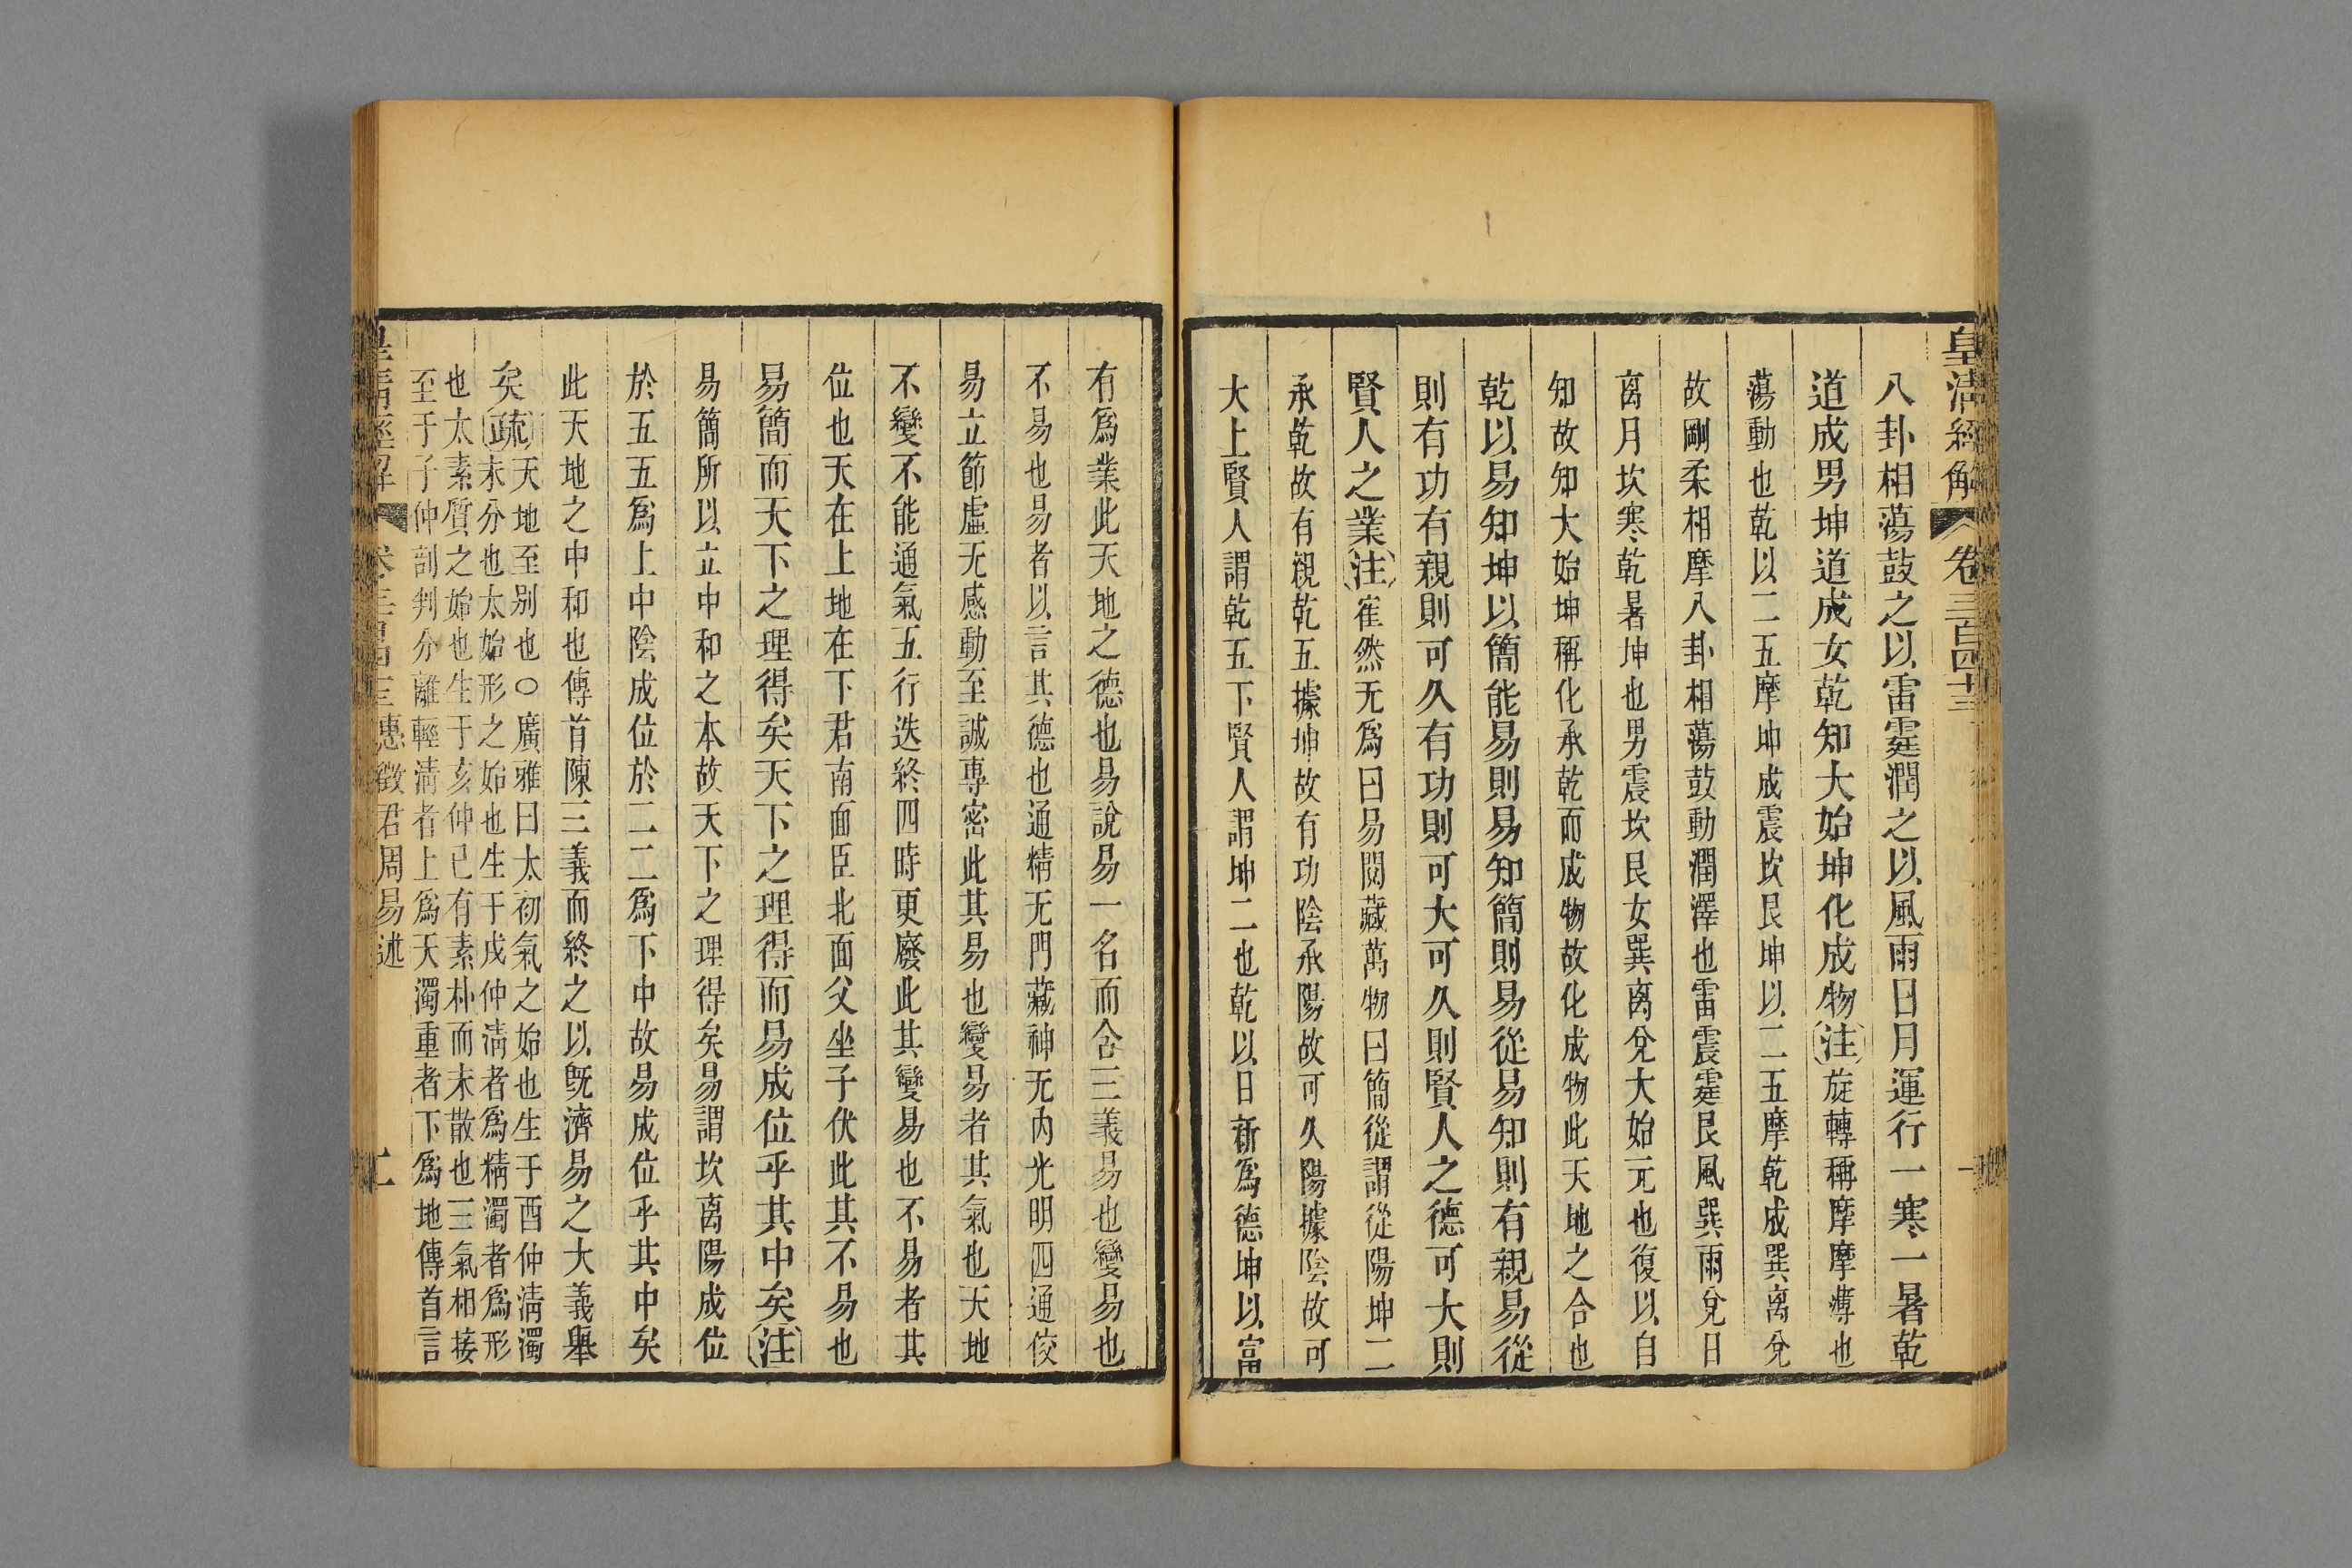 皇清經解 卷三百四十三
八卦相蕩鼓之以雷霆潤之以風雨日月運行一寒一暑乾
道成男坤道成女乾知大始坤化成物注旋轉稱摩摩薄也
蕩動也乾以二五摩坤成震坎艮坤以二五摩乾成巽离兌
故剛柔相摩八卦相蕩鼓動潤澤也雷震霆艮風巽雨兌日
离月坎寒乾暑坤也男震坎艮女巽离兌大始元也復以自
知故知大始坤稱化承乾而成物故化成物此天地之合也
乾以易知坤以簡能易則易知簡則易從易知則有親易從
則有功有親則可久有功則可大可久則賢人之德可大則
賢人之業注隺然无爲曰易閱藏萬物曰簡從謂從陽坤二
承乾故有親乾五據坤故有功陰承陽故可久陽據陰故可
大上賢人謂乾五下賢人謂坤二也乾以日新爲德坤以富
有爲業此天地之德也易說易一名而含三義易也變易也
不易也易者以言其德也通精无門藏神无內光明四通佼
易立節虛无感動至誠專密此其易也變易者其氣也天地
不變不能通氣五行迭終四時更廢此其變易也不易者其
位也天在上地在下君南面臣北面父坐子伏此其不易也
易簡而天下之理得矣天下之理得而易成位乎其中矣注
易簡所以立中和之本故天下之理得矣易謂坎离陽成位
於五五爲上中陰成位於二二爲下中故易成位乎其中矣
此天地之中和也傳首陳三義而終之以旣濟易之大義舉
矣疏天地至别也○廣雅曰太初氣之始也生于酉仲淸濁
未分也太始形之始也生于戌仲淸者爲精濁者爲形
也太素質之始也生于亥仲已有素朴而未散也三氣相接
至于子仲剖判分離輕淸者上爲天濁重者下爲地傳首言
皇清經解 惠徵君周易述 二